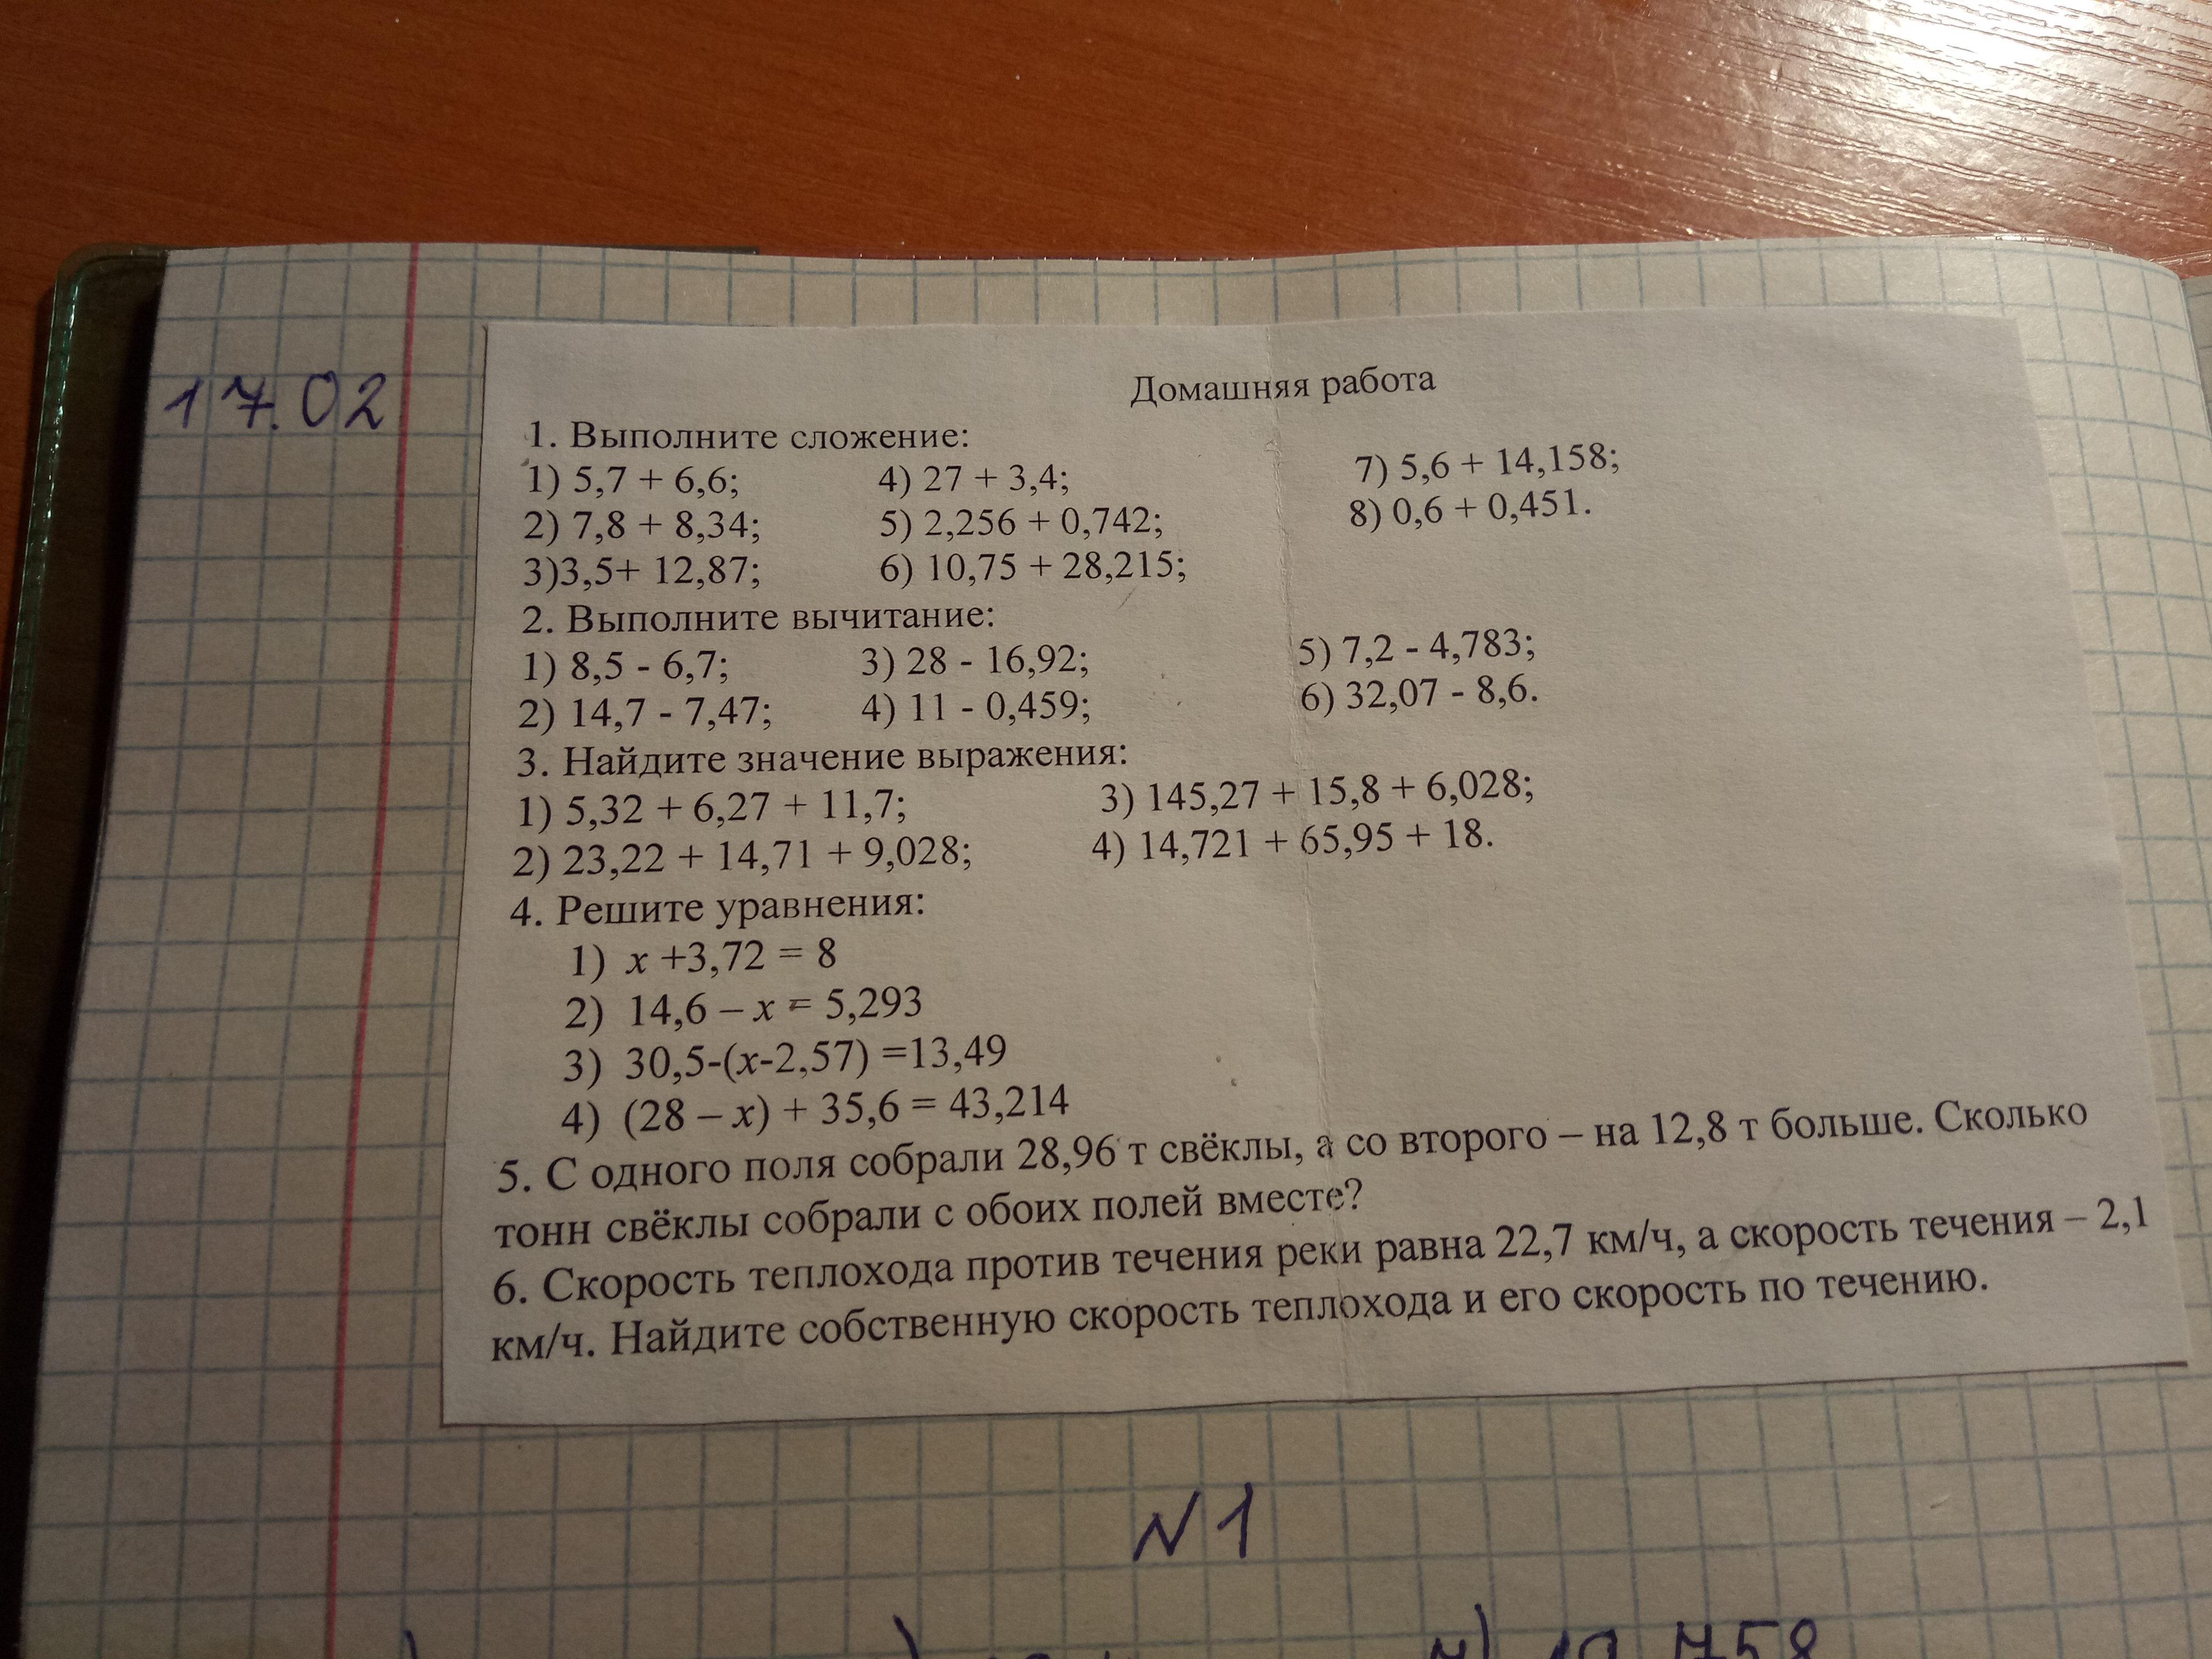 17.02
Домашняя работа
1. Выполните сложение:
1) 5,7 + 6,6; 4) 27 + 3,4; 7) 5,6 + 14,158;
2) 7,8 + 8,34; 5) 2,256 + 0,742; 8) 0,6 + 0,451.
3)3,5+ 12,87; 6) 10,75 + 28,215;
2. Выполните вычитание:
1) 8,5 - 6,7; 3) 28 - 16,92; 5) 7,2 - 4,783;
2) 14,7 - 7,47; 4) 11 - 0,459; 6) 32,07 - 8,6.
3. Найдите значение выражения:
1) 5,32 + 6,27 + 11,7; 3) 145,27 + 15,8 + 6,028;
2) 23,22 + 14,71 + 9,028; 4) 14,721 + 65,95 + 18.
4. Решите уравнения:
1) x +3,72 = 8
2) 14,6 – x = 5,293
3) 30,5-(x-2,57) =13,49
4) (28 – x) + 35,6 = 43,214
5. С одного поля собрали 28,96 т свёклы, а со второго – на 12,8 т больше. Сколько
тонн свёклы собрали с обоих полей вместе?
6. Скорость теплохода против течения реки равна 22,7 км/ч, а скорость течения – 2,1
км/ч. Найдите собственную скорость теплохода и его скорость по течению.
N1
7) 19,758